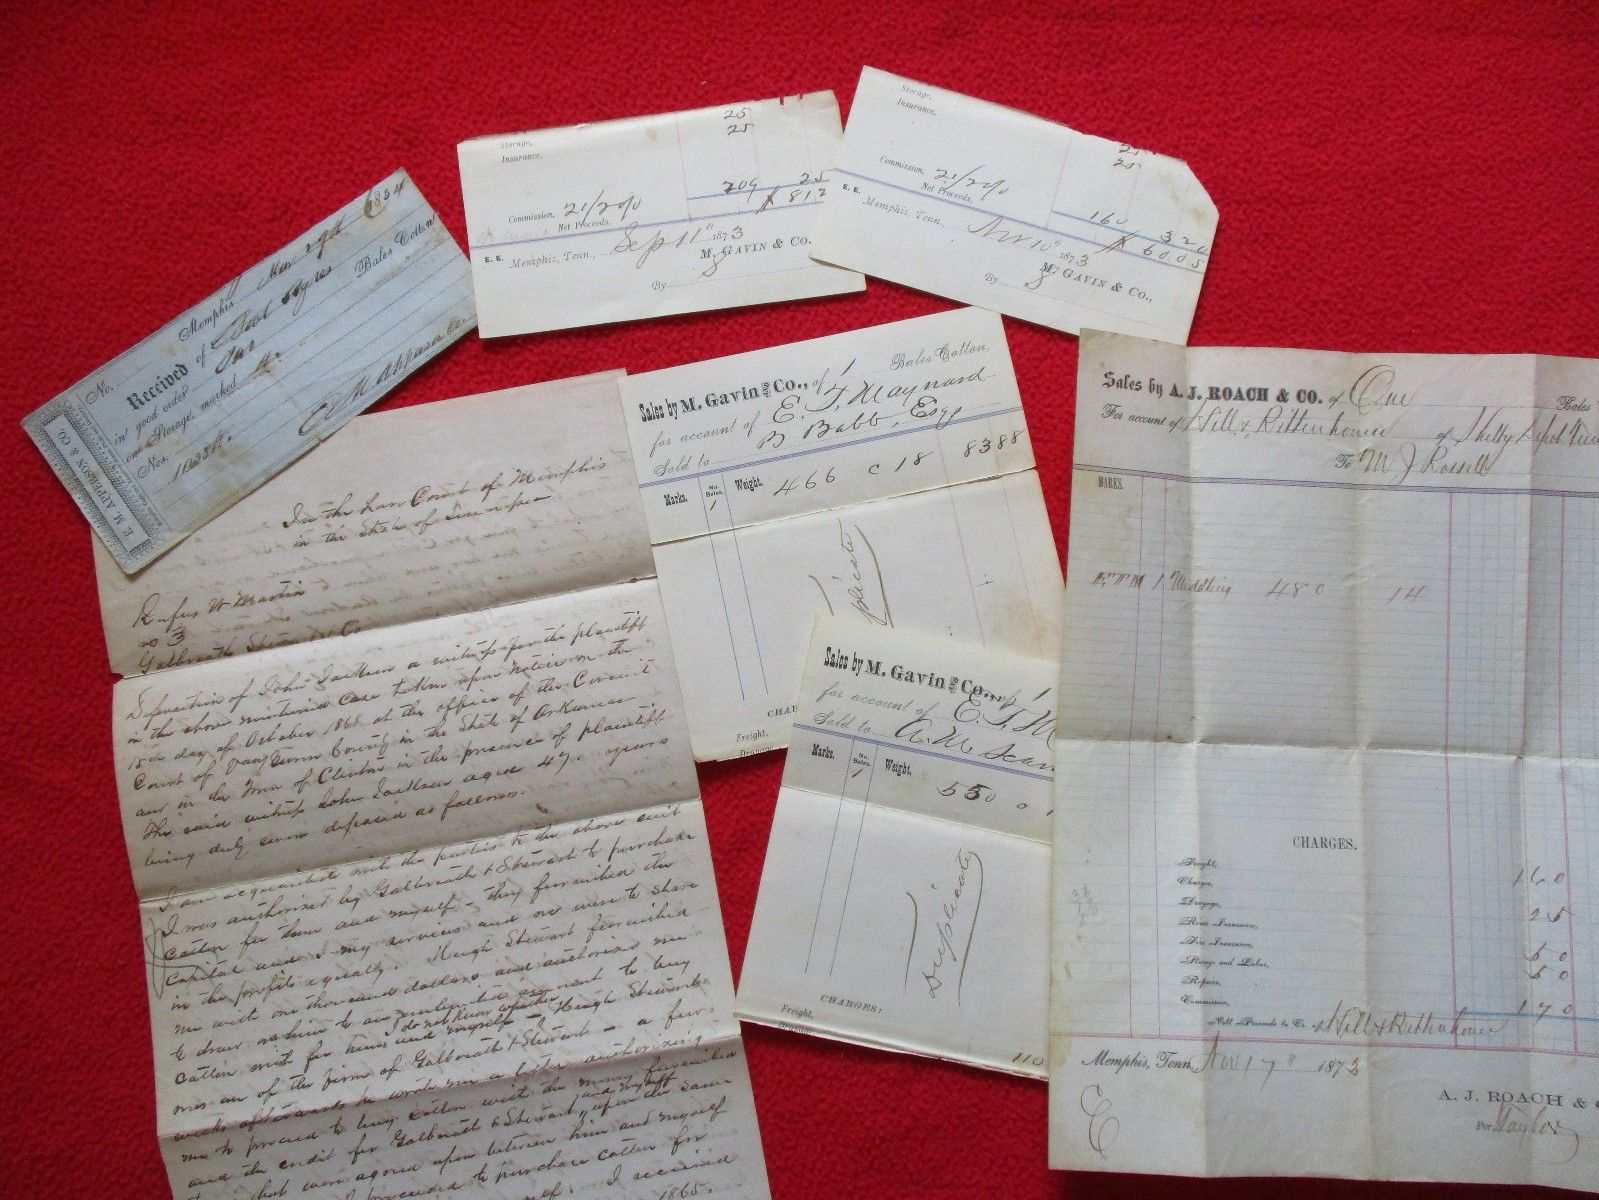 No.
Memphis Mar 29th 1854
Received of
Bales Cotton
in good order
on Storage, marked
Nos.
E. M. APPERSON & CO.
Storage,
Insurance,
25
25
Commission, 2 1/2 %
209 25
Net Proceeds.
$ 812
E. E. Memphis, Tenn., Sep 11th 1873
M. GAVIN & CO.
By
Storage,
Insurance,
25
25
Commission, 2 1/2 %
160
Net Proceeds,
320
$ 6005
E. E. Memphis, Tenn., Nov 10th 1873
M. GAVIN & CO.,
By
Sales by M. Gavin and Co., of 1 Bales Cotton,
for account of E. T. Maynard
Sold to B Babb, Esqr
Marks. No. Bales. Weight.
1 466 c 18 8388
Duplicate
CHAR
Freight,
Sales by M. Gavin and Co., of 1
for account of E. T. M
Sold to A. M. Scan
Marks. No. Bales. Weight.
1 550
Duplicate
CHARGES:
Freight,
110
Sales by A. J. ROACH & CO. of One Bales
For account of Hill & Rittenhouse of Shelby Depot Tenn
To M J Rossell
MARKS.
1 Middling 480 14
CHARGES.
Freight, 160
Charges,
Drayage, 25
River Insurance,
Fire Insurance, 50
Storage and Labor, 50
Repairs,
Commission, 170
Nett Proceeds to Cr. of Hill & Rittenhouse
Memphis, Tenn. Nov 17" 1873
A. J. ROACH & C
Per Taylor
In the Law Court of Memphis
in the State of Tennessee
Rufus W Martin
vs 3
Galbreath Stewart & Co
Deposition of John Jackson a witness for the plaintiff
in the above mentioned case taken upon notice on the
15th day of October 1868 at the office of the Circuit
Court of Van Buren County in the State of Arkansas
and in the Town of Clinton in the presence of plaintiff
The said witness John Jackson aged 47 years
being duly sworn deposed as follows.
I am acquainted with the parties to the above suit
I was authorised by Galbreath & Stewart to purchase
cotton for them and myself - they furnished the
capital and I my services and we were to share
in the profits equally. Hugh Stewart furnished
me with one thousand dollars and authorised me
to draw on him to an unlimited amount to buy
cotton with for him and myself - I do not know whether Hugh Stewart
was one of the firm of Galbreath & Stewart - a few
weeks afterwards he wrote me a letter authorizing
me to proceed to buy cotton with the money furnished
and the credit for Galbreath & Stewart and myself upon the same
that were agreed upon between him and myself
I proceeded to purchase cotton for
myself. I received
1865.